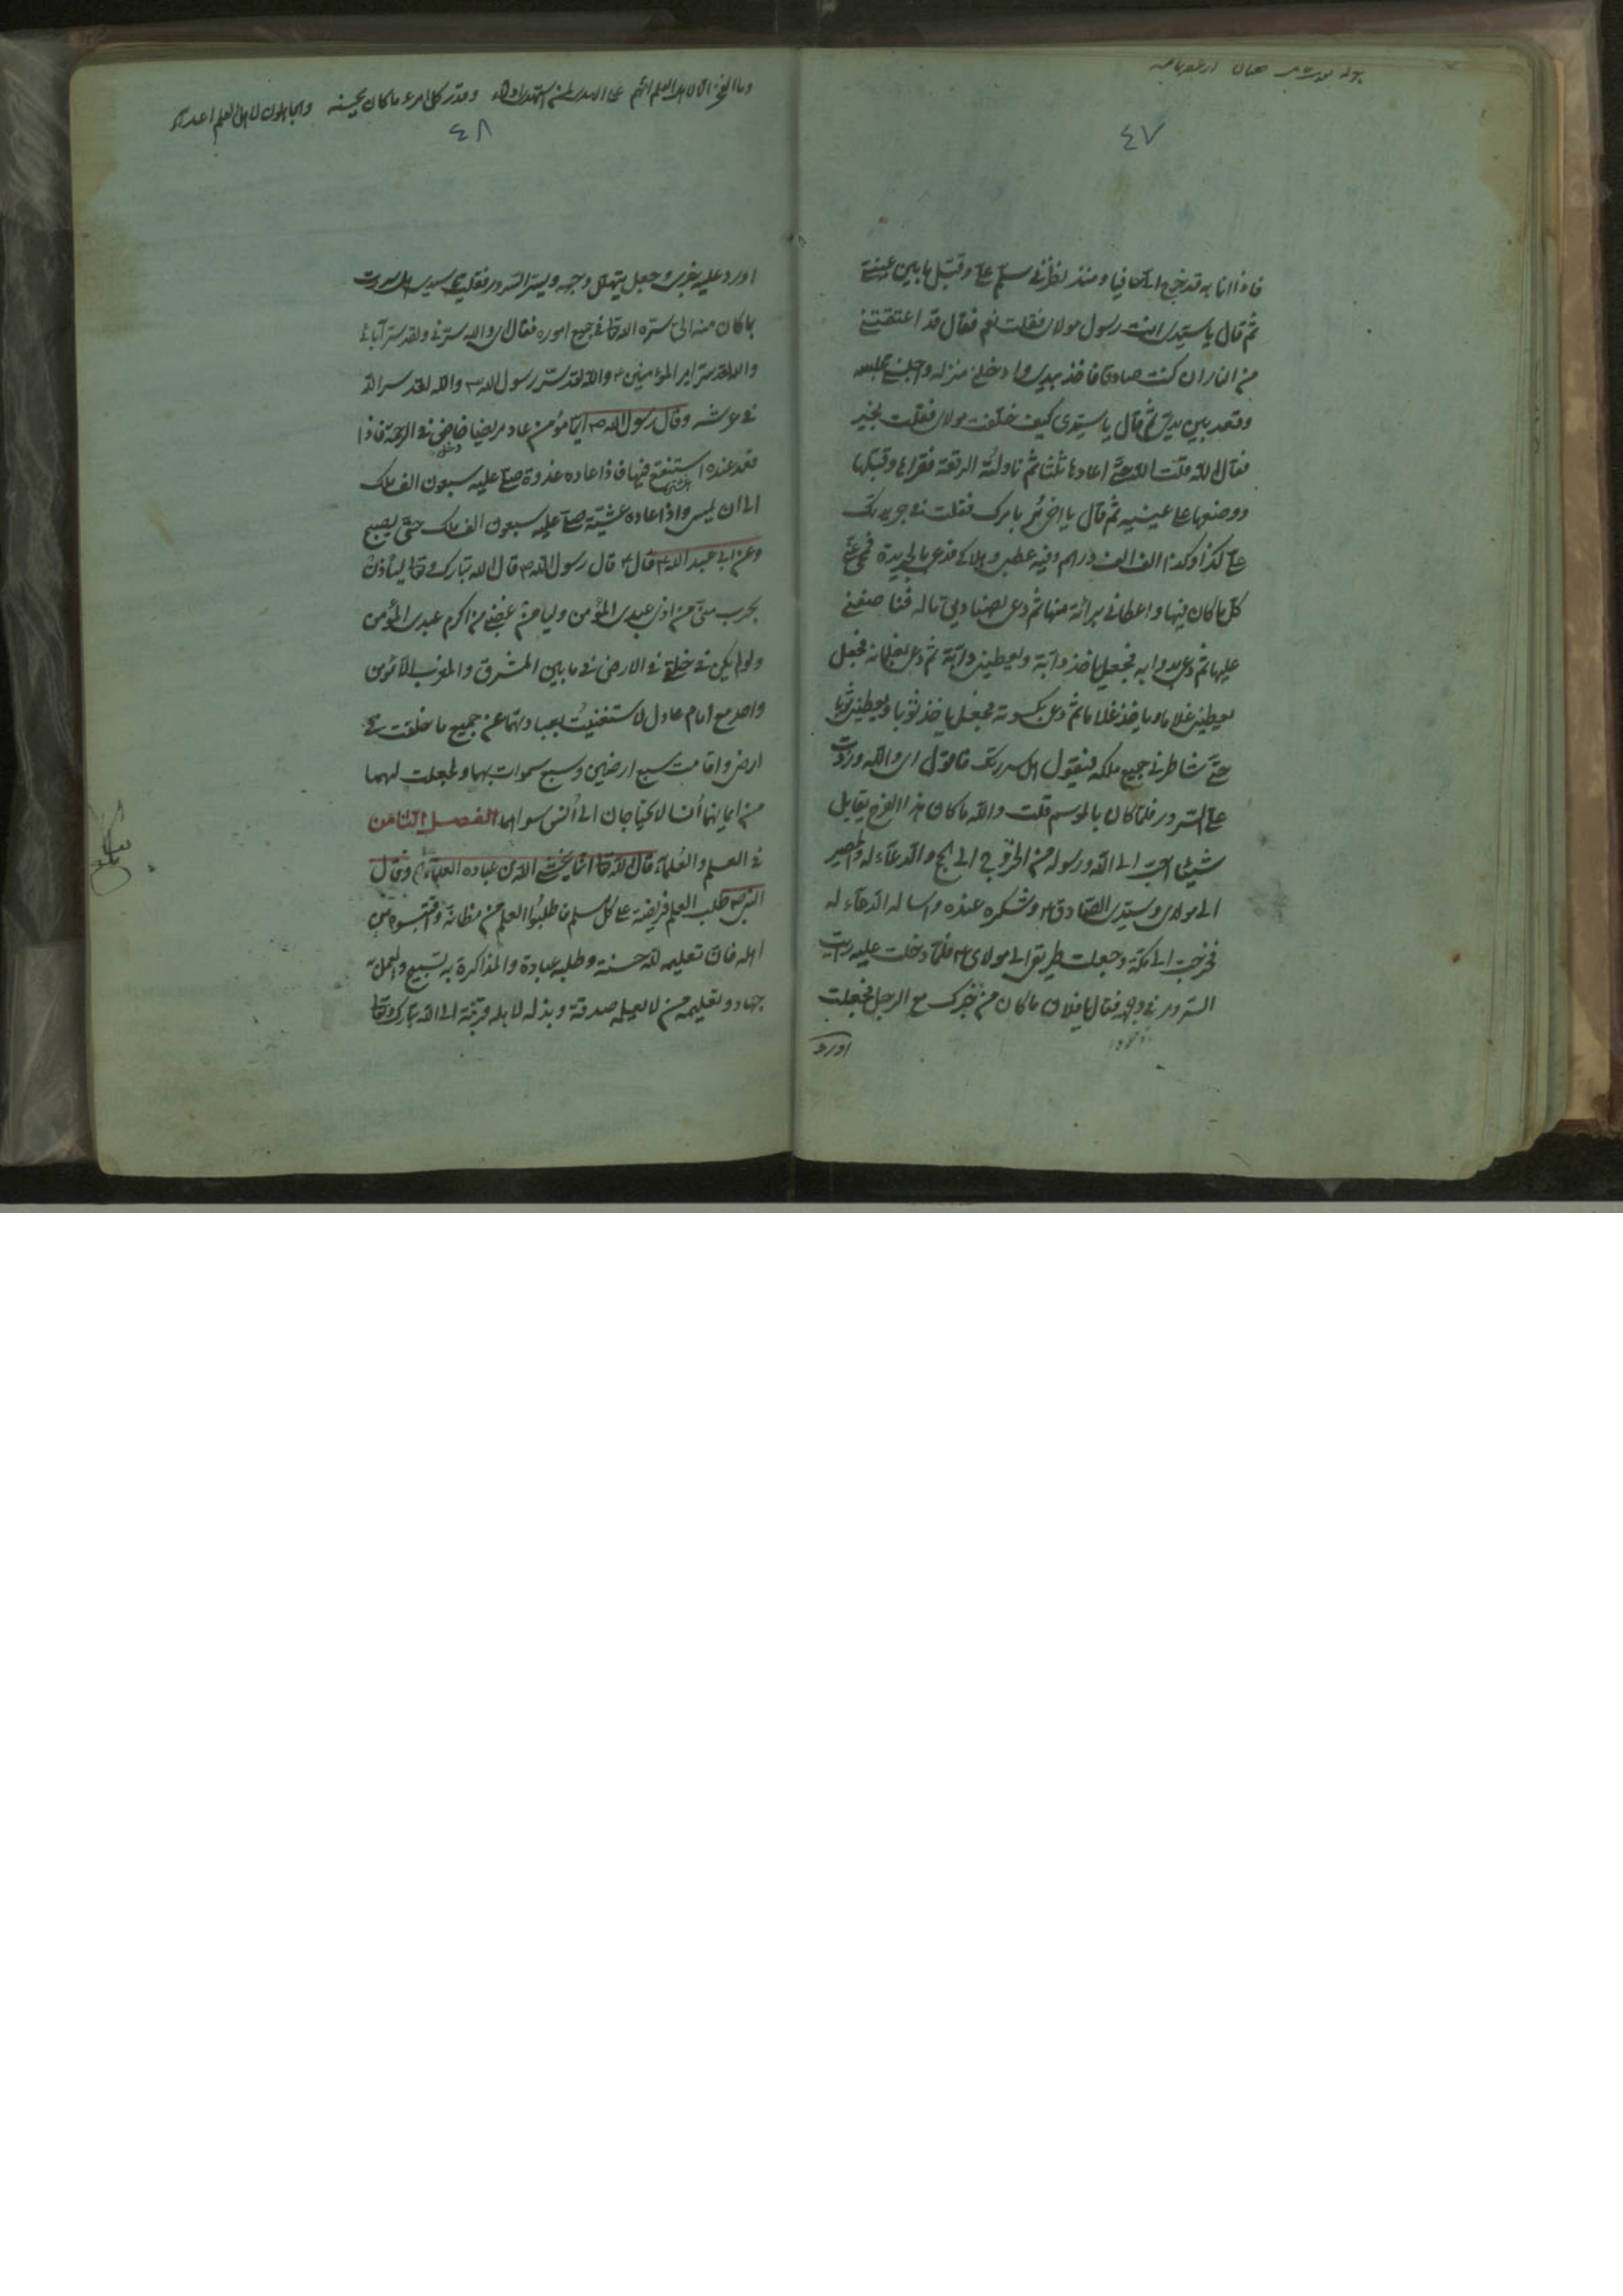 ٤٧
فاذا انا به قد خرج الىّ حافيا ومنذ نظرني سلم علىّ وقبّل ما بين عينىّ
ثم قال يا سيدى انت رسول مولاى فقلت نعم فقال قد اعتقتنى
من النار ان كنت صادقا فاخذ بيدى وادخلنى منزله واجلسنى مجلسه
وقعد بين يدىّ ثم قال يا سيدى كيف خلفت مولاى فقلت بخير
فقال الله قلت الله حتى اعادها ثلثا ثم ناولته الرقعة فقراها وقبلها
ووضعها على عينيه ثم قال يا اخى مُر بامرك فقلت فى جريدتك
علىّ كذا وكذا الف الف درهم وفيه عطبى وهلاكى فدعى بالجريدة فمحى عنّى
كل ما كان فيها واعطانى برائة منها ثم دعى بصناديق ماله فناصفنى
عليها ثم دعى بدوابه فجعل ياخذ دابة ويعطينى دابة ثم دعى بغلمانه فجعل
يعطينى غلاما وياخذ غلاما ثم دعى بكسوته فجعل ياخذ ثوبا ويعطينى ثوبا
حتى شاطرنى جميع ملكه فيقول هل سررتك فاقول اى والله وزدت
علىّ السرور فلما كان بالموسم قلت والله ما كان هذا الفرح يقابل
شيئ احب الى الله ورسوله من الخروج الى الحج والدعاء له والمصير
الى مولاى وسيدى الصادق ع وشكره عنده واساله الدعاء له
فخرجت الى مكة وجعلت طريقى الى مولاى ع فلما دخلت عليه رايت
السرور فى وجهه فقال يا فلان ما كان من خبرك مع الرجل فجعلت
اورد
وما الفخر الا لاهل العلم انهم على الهدى لمن استهدى ادلاء وقدر كل امرء ما كان يحسنه والجاهلون لاهل العلم اعداء
٤٨
اورد عليه خبرى وجعل يتهلل وجهه ويسر السرور فقلت يا سيدى هل سررت
بما كان منه الىّ سره الله تعا فى جميع اموره فقال اى والله سرنى ولقد سر آبائى
والله لقد سر امير المؤمنين ع والله لقد سر رسول الله ص والله لقد سر الله
فى عرشه وقال رسول الله ص ايّما مؤمن عاد مريضا خاض فى الرحمة فاذا
قعد عنده استنقع فيها فاذا عاده غدوة صلى عليه سبعون الف ملك
الى ان يمسى واذا عاده عشية صلى عليه سبعون الف ملك حتى يصبح
وعن ابى عبد الله ع قال ع قال رسول الله ص قال الله تبارك وتعا ليأذن
بحرب منّى من اذى عبدى المؤمن وليأمن غضبى من اكرم عبدى المؤمن
ولو لم يكن فى خلقى فى الارض فى ما بين المشرق والمغرب الا مؤمن
واحد مع امام عادل لاستغنيت بعبادتهما عن جميع ما خلقت فى
ارضى واقامت سبع ارضين وسبع سموات بهما ولجعلت لهما
من ايمانهما أنسا لا يحتاجان الى أنس سواهما الفصل الثامن
فى العلم والعلماء قال الله تعا انّما يخشى الله من عباده العلماء وقال
النبى ص طلب العلم فريضة على كل مسلم فاطلبوا العلم من مظانّه واقتبسوه من
اهله فان تعليمه لله حسنة وطلبه عبادة والمذاكرة به تسبيح والعمل به
جهاد وتعليمه من لا يعلمه صدقة وبذله لاهله قربة الى الله تبارك وتعا